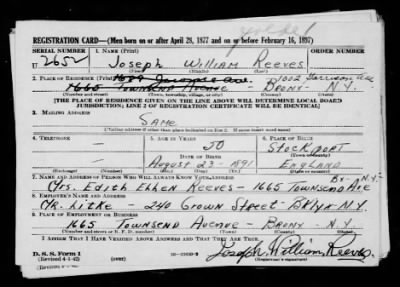 REGISTRATION CARD—(Men born on or after April 28, 1877 and on or before February 16, 1897)
SERIAL NUMBER
1. NAME (Print)
ORDER NUMBER
U 2652
Joseph William Reeves
(First) (Middle) (Last)
2. PLACE OF RESIDENCE (Print)
1002 Garrison Ave
1665 Townsend Avenue - Bronx - N.Y.
(Number and street) (Town, township, village, or city) (County) (State)
[THE PLACE OF RESIDENCE GIVEN ON THE LINE ABOVE WILL DETERMINE LOCAL BOARD
JURISDICTION; LINE 2 OF REGISTRATION CERTIFICATE WILL BE IDENTICAL]
3. MAILING ADDRESS
Same
(Mailing address if other than place indicated on line 2. If same insert word same)
4. TELEPHONE
5. AGE IN YEARS
6. PLACE OF BIRTH
—
50
Stockport
DATE OF BIRTH
(Town or county)
—
August 23 - 1891
England
(Exchange) (Number)
(Mo.) (Day) (Yr.)
(State or country)
7. NAME AND ADDRESS OF PERSON WHO WILL ALWAYS KNOW YOUR ADDRESS
Bx - N.Y.
Mrs. Edith Ellen Reeves - 1665 Townsend Ave
8. EMPLOYER'S NAME AND ADDRESS
Mr. Litke - 240 Crown Street - Bklyn N.Y.
9. PLACE OF EMPLOYMENT OR BUSINESS
1665 Townsend Avenue - Bronx N.Y.
(Number and street or R. F. D. number) (Town) (County) (State)
I AFFIRM THAT I HAVE VERIFIED ABOVE ANSWERS AND THAT THEY ARE TRUE.
D. S. S. Form 1
(Revised 4-1-42)
Joseph William Reeves.